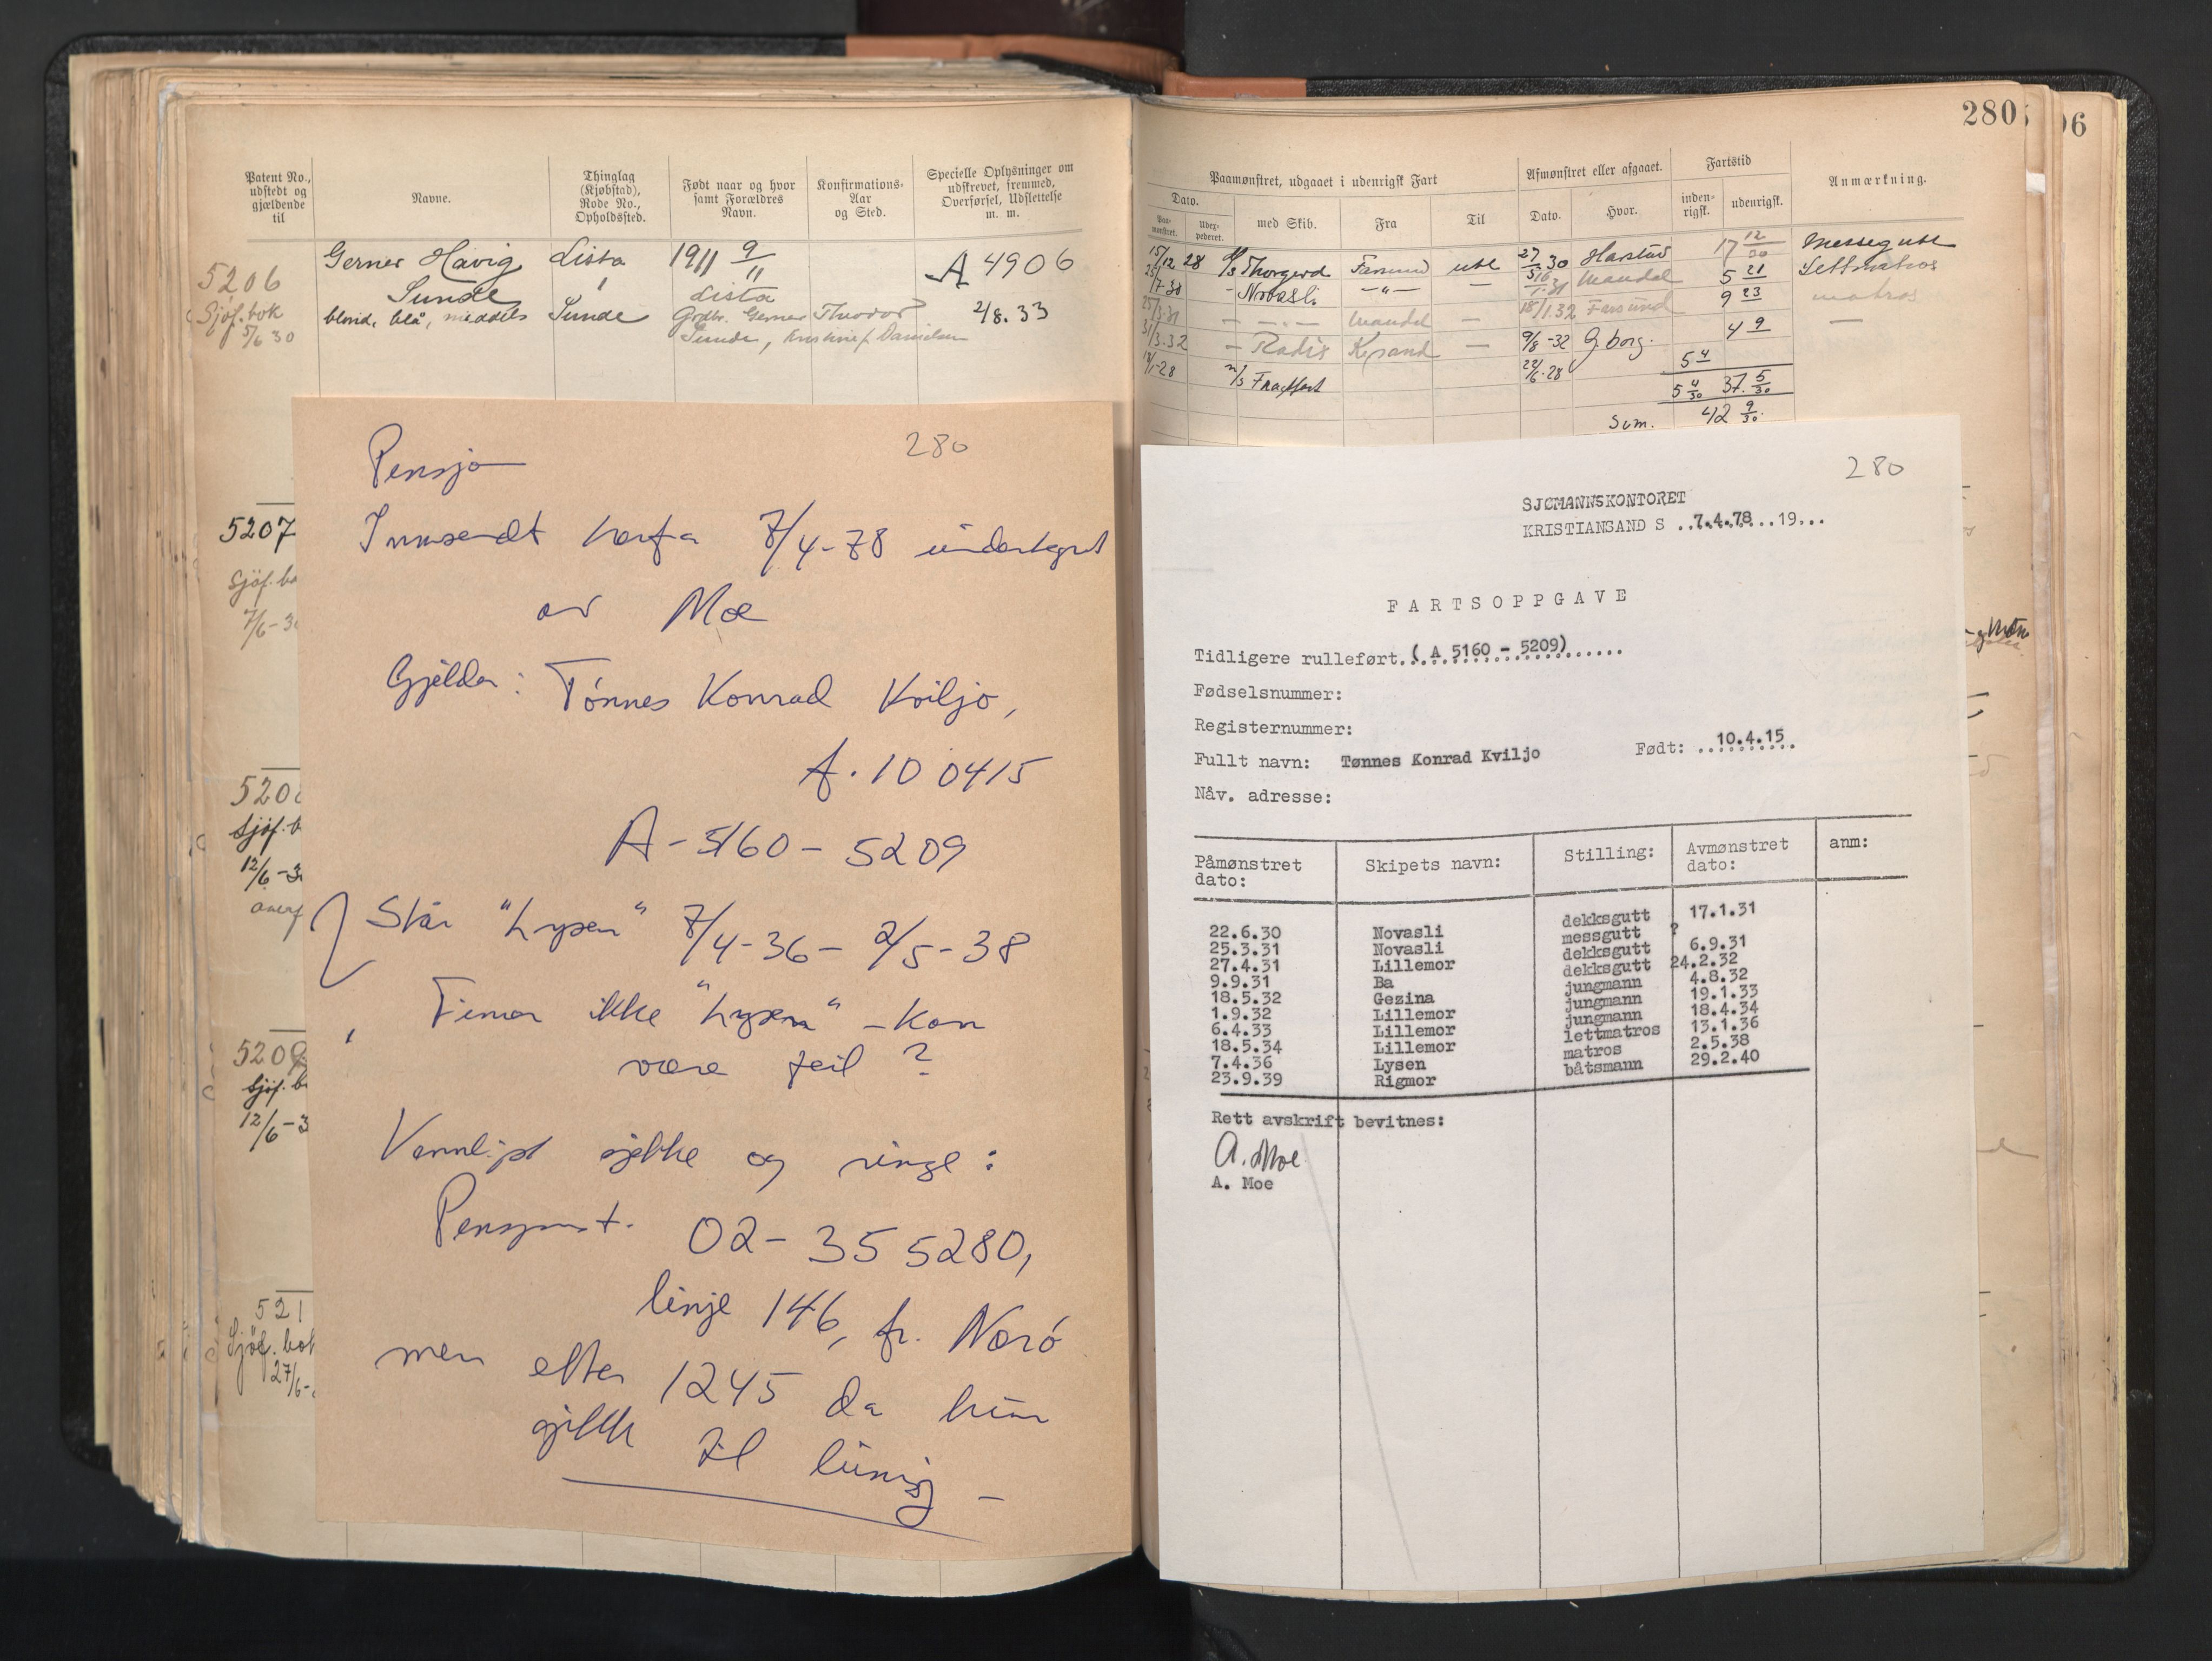 280
06
Patent No., udstedt og gjældende til
Navne.
Thinglag (Kjøbstad), Rode No., Opholdssted.
Født naar og hvor samt Forældres Navn.
Konfirmations-Aar og Sted.
Specielle Oplysninger om udskrevet, fremmed, Overførsel, Udslettelse m. m.
5206
Sjøf.bok
5/6 30
Gerner Havig
Sunde
blond, blå, middels
Lista
Sunde
1911 9/11
Lista
Godbr. Gerner Theodor
Sunde, Kristine f. Danielsen
A 4906
2/8. 33
5207
Sjöf. bo
7/6-30
Sjöf. b
12/6-3
overf
5209
Sjöf. b
12/6-3
521
Sjöf. bok
27/6-
Paamønstret, udgaaet i udenrigsk Fart
Afmønstret eller afgaaet.
Fartstid
Anmærkning.
Dato.
Paa-mønstret.
Uder-pederet.
med Skib.
Fra
Til
Dato.
Hvor.
inden-rigsk.
udenrigsk.
15/12 28 Thorgerd Farsund utl 27/5 30 Harstad 17 12/30 Messegutt
Novasli -"- - Mandal 5 21 Lettmatros
25/3.31 - - Mandal - 18/1.32 Farsund 9 23 matros
31/3.32 - Radix Krsand - 9/8-32 G.borg. 4 9 -
m/s 22/6-28 5 4
5 4/30 37. 5/30
Sum. 42 9/30.
280
Pensjo
Innsendt herfra 7/4-78 undertegnet
av Moe
Gjelder: Tønnes Konrad Kviljo,
f. 10 0415
A-5160-5209
Står "Lysen" 7/4-36 - 2/5-38
Finner ikke "Lysen" - kan
være feil?
Vennligst sjekke og ringe:
Pensjonst. 02-35 5280,
linje 146, fr. Nerö
men etter 1245 da hun
gikk til lunsj -
280
SJØMANNSKONTORET
KRISTIANSAND S ..7.4.78...19...
FARTSOPPGAVE
Tidligere rulleført.(.A 5160 - 5209)......
Fødselsnummer:
Registernummer:
Fullt navn: Tønnes Konrad Kviljo Født: 10.4.15
Nåv. adresse:
Påmønstret dato: Skipets navn: Stilling: Avmønstret dato: anm:
22.6.30 Novasli dekksgutt 17.1.31
25.3.31 Novasli messgutt ?
27.4.31 Lillemor dekksgutt 6.9.31
9.9.31 Ba dekksgutt 24.2.32
18.5.32 Gezina jungmann 4.8.32
1.9.32 Lillemor jungmann 19.1.33
6.4.33 Lillemor jungmann 18.4.34
18.5.34 Lillemor lettmatros 13.1.36
7.4.36 Lysen matros 2.5.38
23.9.39 Rigmor båtsmann 29.2.40
Rett avskrift bevitnes:
A. Moe
A. Moe